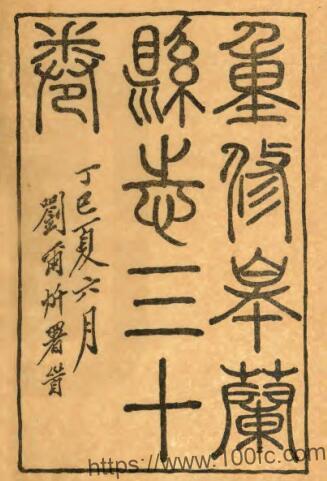 重修皋蘭
縣志三十
卷
丁巳夏六月
劉爾炘署首
https://www.100fc.com